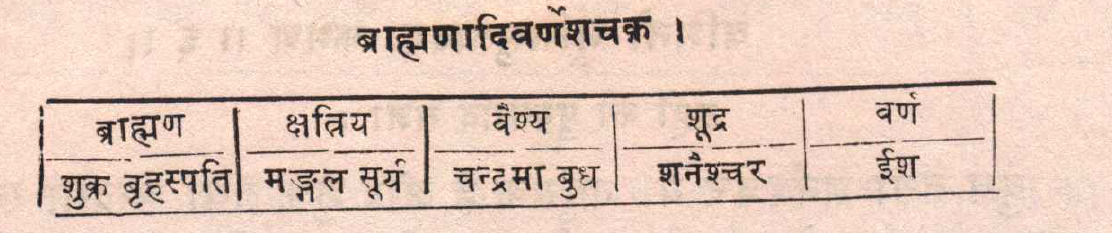 ब्राह्मणादिवर्णेशचक्र ।
ब्राह्मण क्षत्रिय वैश्य शूद्र वर्ण
शुक्र बृहस्पति मङ्गल सूर्य चन्द्रमा बुध शनैश्चर ईश